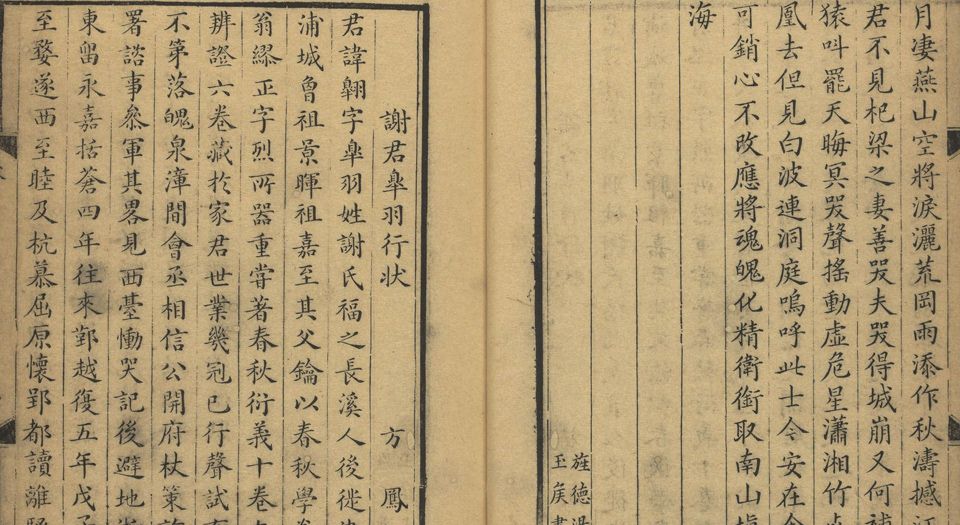 月凄燕山空將淚灑荒岡雨添作秋濤撼
君不見杞梁之妻善哭夫哭得城崩又何補
猿叫罷天晦冥哭聲搖動虛危星瀟湘竹
凰去但見白波連洞庭嗚呼此士今安在
可銷心不改應將魂魄化精衛銜取南山
海
旌德
玉矦
謝君皋羽行狀
方鳳
君諱翱字皋羽姓謝氏福之長溪人後徙
浦城魯祖景暉祖嘉至其父鑰以春秋學
翁繆正字烈所器重嘗著春秋衍義十卷
辨證六卷藏於家君世業幾冠已行聲試
不第落魄泉漳間會丞相信公開府杖策
署諮事叅軍其畧見西臺慟哭記後避地
東留永嘉括蒼四年往來鄞越復五年戊
至婺遂西至睦及杭慕屈原懷郢都讀離